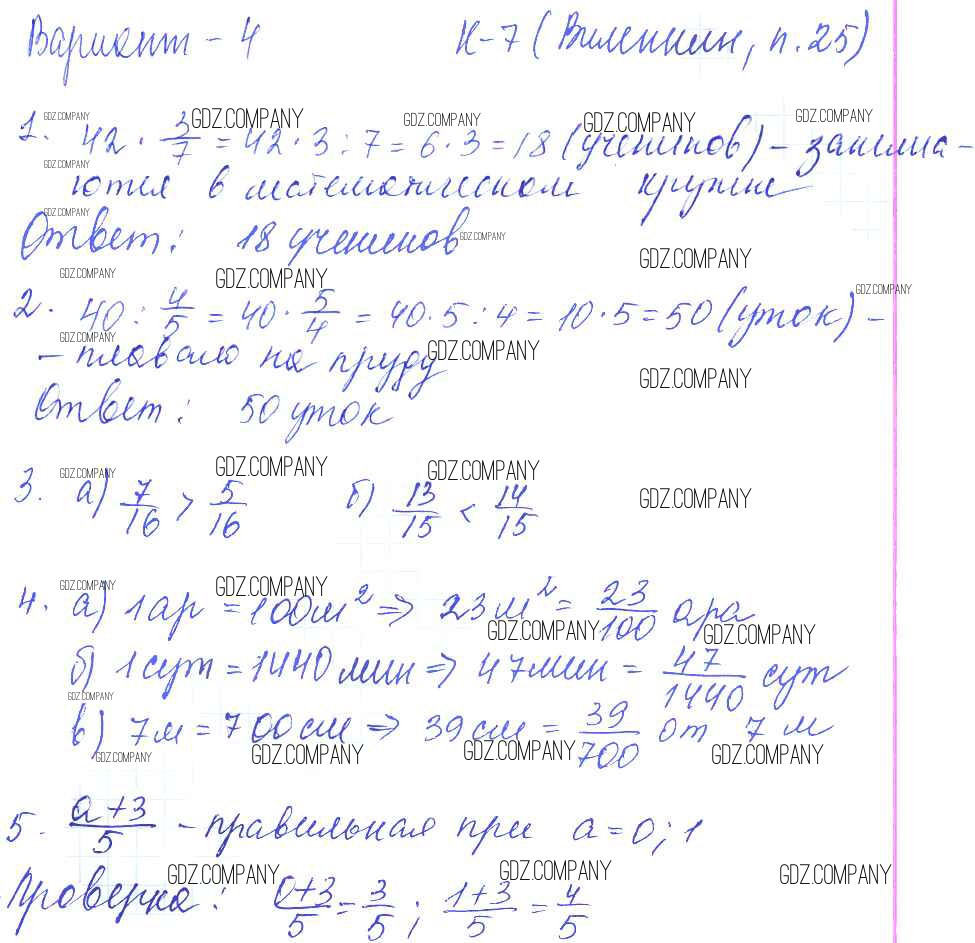 Вариант - 4 К-7 (Виленкин, п. 25)
GDZ.COMPANY GDZ.COMPANY GDZ.COMPANY GDZ.COMPANY GDZ.COMPANY
1. 42 · 3/7 = 42 · 3 : 7 = 6 · 3 = 18 (учеников) – занима-
GDZ.COMPANY
ются в математическом кружке
GDZ.COMPANY
Ответ: 18 учеников
GDZ.COMPANY GDZ.COMPANY
GDZ.COMPANY GDZ.COMPANY GDZ.COMPANY
2. 40 : 4/5 = 40 · 5/4 = 40 · 5 : 4 = 10 · 5 = 50 (уток) –
GDZ.COMPANY GDZ.COMPANY
– плавало на пруду
GDZ.COMPANY
Ответ: 50 уток
GDZ.COMPANY GDZ.COMPANY GDZ.COMPANY
3. а) 7/16 > 5/16 б) 13/15 < 14/15
GDZ.COMPANY
GDZ.COMPANY GDZ.COMPANY
4. а) 1 ар = 100 м² => 23 м² = 23/100 ара
GDZ.COMPANY GDZ.COMPANY
б) 1 сут = 1440 мин => 47 мин = 47/1440 сут
GDZ.COMPANY
в) 7 м = 700 см => 39 см = 39/700 от 7 м
GDZ.COMPANY GDZ.COMPANY GDZ.COMPANY GDZ.COMPANY
5. a+3/5 – правильная при a = 0; 1
GDZ.COMPANY GDZ.COMPANY GDZ.COMPANY
Проверка: 0+3/5 = 3/5; 1+3/5 = 4/5